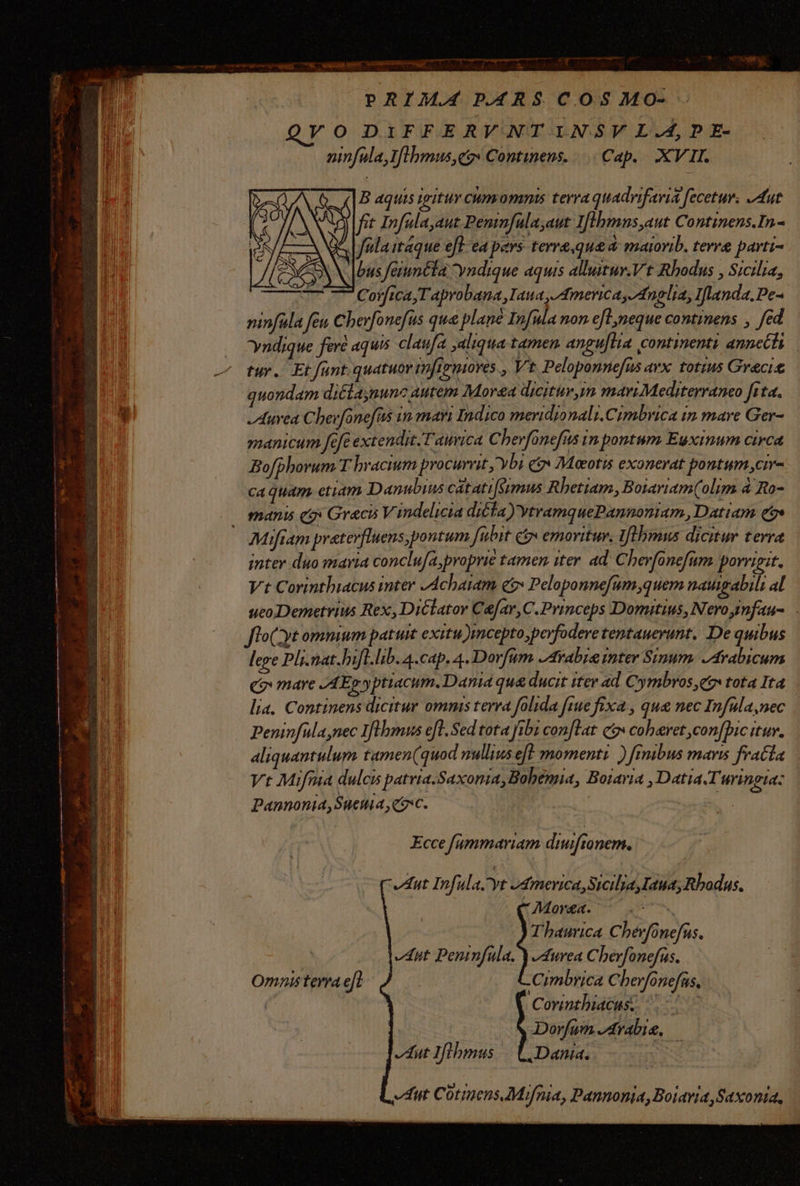 PRIMA PARS COSMO-
QVO DIFFERVNT INSVLA, PE-
ninſula, Iſthmus, & Continens. Cap. XVII.
AB aquis igitur cum omnis terra quadrifariā ſecetur. Aut
fit Inſula, aut Peninſula, aut Iſthmus, aut Continens. In-
ſula itáque eſt ea pars terræ, quæ à maiorib. terræ parti-
bus ſeiuncta vndique aquis alluitur. Vt Rhodus, Sicilia,
Corſica, Taprobana, Iaua, America, Anglia, Iſlanda. Pe-
ninſula ſeu Cherſoneſus quæ planè Inſula non eſt, neque continens, ſed
vndique ferè aquis clauſa, aliqua tamen anguſtia continenti annecti
tur. Et ſunt quatuor inſigniores, Vt Peloponneſus arx totius Græciæ
quondam dicta, nunc autem Moræa dicitur, in mari Mediterraneo ſita.
Aurea Cherſoneſus in mari Indico meridionali. Cimbrica in mare Ger-
manicum ſeſe extendit. Taurica Cherſoneſus in pontum Euxinum circa
Boſphorum Thracium procurrit, vbi & Mæotis exonerat pontum, cir-
ca quam etiam Danubius cātatiſsimus Rhetiam, Boiariam (olim à Ro-
manis & Græcis Vindelicia dicta) vtramque Pannoniam, Datiam &
Miſiam præterfluens, pontum ſubit & emoritur. Iſthmus dicitur terra
inter duo maria concluſa, propriè tamen iter ad Cherſoneſum porrigit.
Vt Corinthiacus inter Achaiam & Peloponneſum, quem nauigabili al
ueo Demetrius Rex, Dictator Cæſar, C. Princeps Domitius, Nero, infau-
ſto (vt omnium patuit exitu) incepto, perfodere tentauerunt. De quibus
lege Pli. nat. hiſt. lib. 4. cap. 4. Dorſum Arabiæ inter Sinum Arabicum
& mare AEgyptiacum. Dania quæ ducit iter ad Cymbros, & tota Ita
lia. Continens dicitur omnis terra ſolida ſiue fixa, quæ nec Inſula, nec
Peninſula, nec Iſthmus eſt. Sed tota ſibi conſtat & cohæret, conſpic itur,
aliquantulum tamen (quod nullius eſt momenti) finibus maris fracta
Vt Miſnia dulcis patria. Saxonia, Bohemia, Boiaria, Datia. Turingia:
Pannonia, Sueuia, &c.
Ecce ſummariam diuiſionem.
Aut Inſula. vt America, Sicilia, Iaua, Rhodus.
Moræa.
Thaurica Cherſoneſus.
Aut Peninſula. Aurea Cherſoneſus.
Omnis terra eſt Cimbrica Cherſoneſus.
Corinthiacus.
Dorſum Arabiæ.
Aut Iſthmus Dania.
Aut Cōtinens. Miſnia, Pannonia, Boiaria, Saxonia.